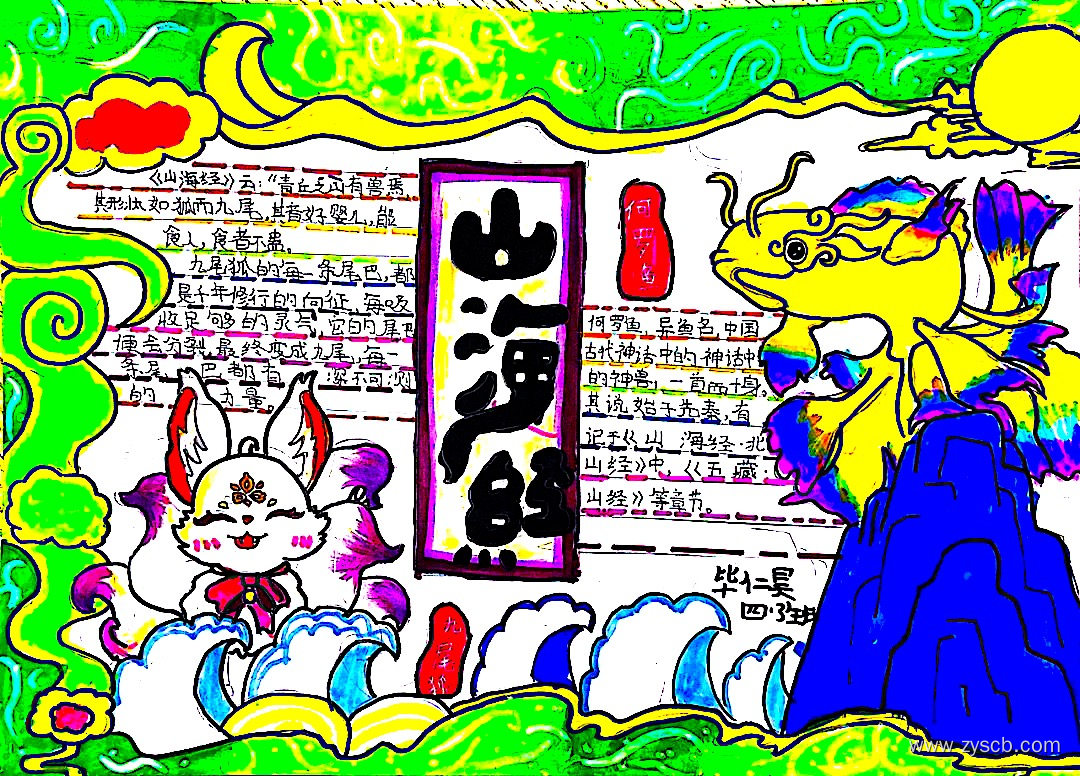 《山海经》云:“青丘之山有兽焉
其形状如狐而九尾,其音好婴儿,能
食人,食者不蛊。
九尾狐的每一条尾巴,都
是千年修行的向征,每吸
收足够的灵气,它的尾巴
便会分裂,最终变成九尾,每一
条尾巴都有深不可测
的力量。
山海经
何罗鱼
何罗鱼,异鱼名,中国
古代神话中的神话中
的神兽,一首而十身。
其说始于先秦,有
记于《山海经·北
山经》中,《五藏·
山经》等章节。
毕仁昊
四·3班
九尾狐
www.zyscb.com